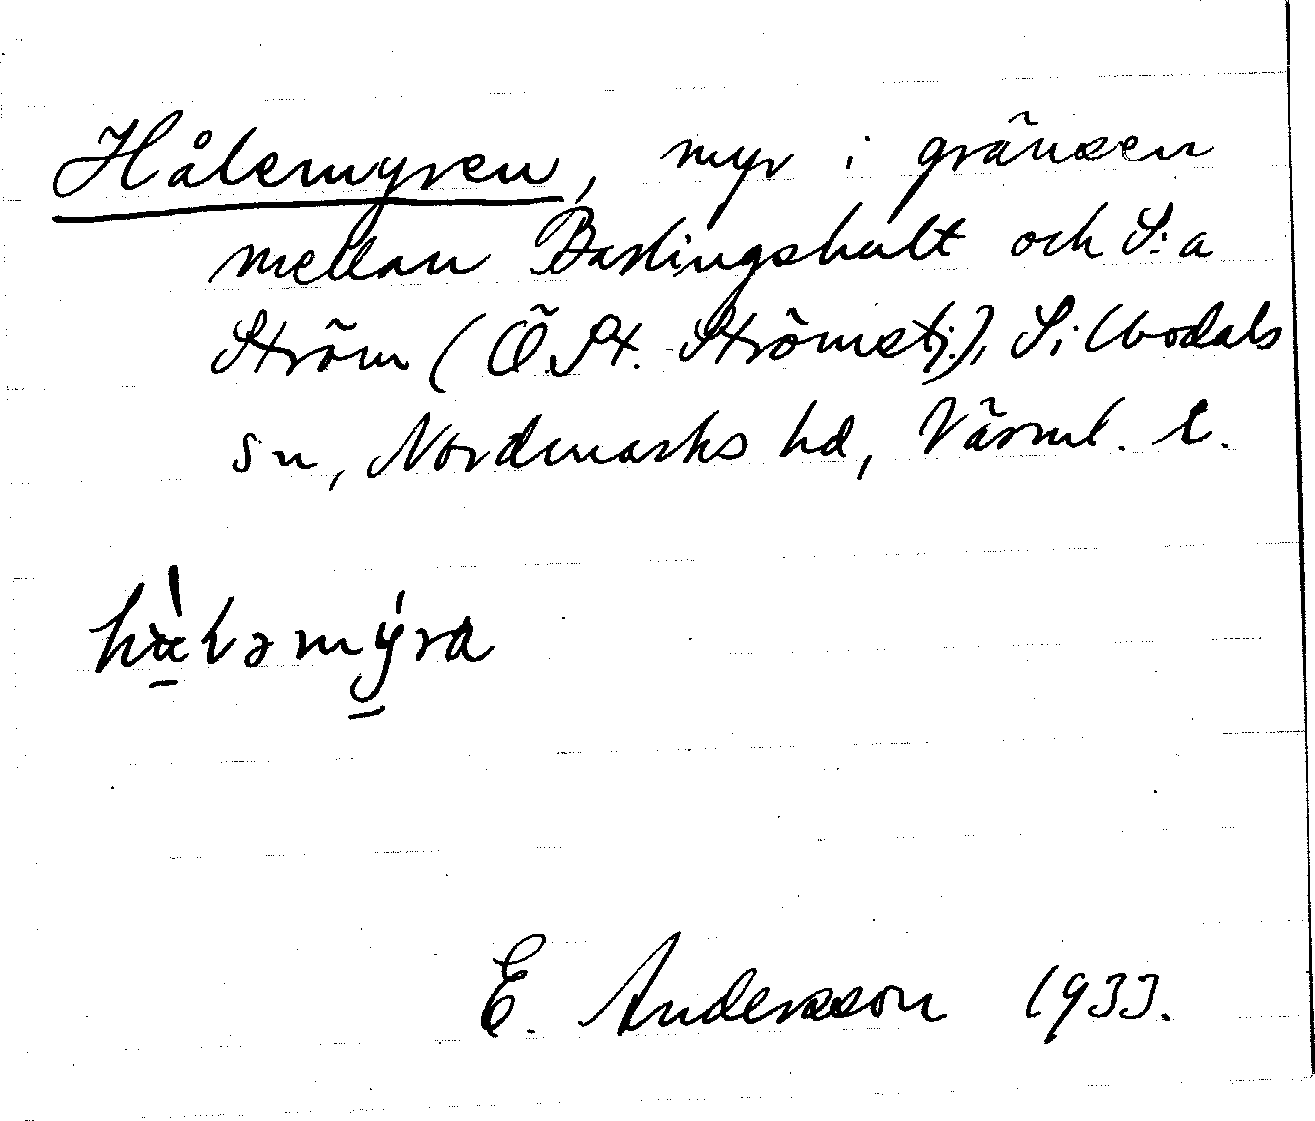 Hålemyren, myr i gränsen
mellan Baslingshult och S:a
Ström (Ö.St. Strömstj.), Silbodals
sn, Nordmarks hd, Värml. l.
E. Andersson 1933.